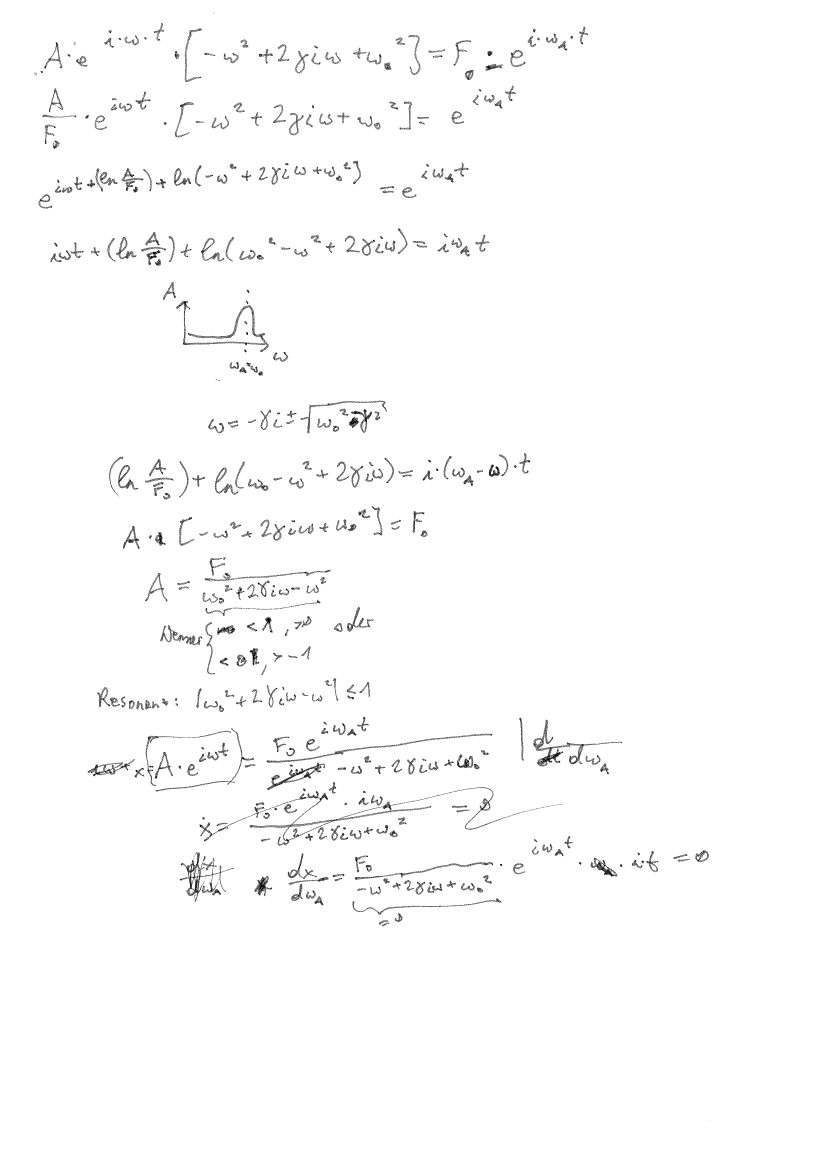 A·e^{i·ω·t} · [-ω² + 2γiω + ω₀²] = F₀ · e^{i·ω_A·t}
A/F₀ · e^{iωt} · [-ω² + 2γiω + ω₀²] = e^{iω_A t}
e^{iωt + (ln A/F₀) + ln(-ω² + 2γiω + ω₀²)} = e^{iω_A t}
iωt + (ln A/F₀) + ln(ω₀² - ω² + 2γiω) = iω_A t
A
ω
ω_A=ω₀
ω = -γi ± √(ω₀² - γ²)
(ln A/F₀) + ln(ω₀ - ω² + 2γiω) = i·(ω_A - ω)·t
A · [-ω² + 2γiω + ω₀²] = F₀
A = F₀/(ω₀² + 2γiω - ω²)
Nenner { < 1, >0 oder
< 0, > -1
Resonanz: |ω₀² + 2γiω - ω²| ≤ 1
x = A·e^{iωt} = F₀ e^{iω_A t}/(-ω² + 2γiω + ω₀²) | d/dω_A
ẋ = F₀·e^{iω_A t} · iω_A/(-ω² + 2γiω + ω₀²) = 0
dx/dω_A = F₀/(-ω² + 2γiω + ω₀²) · e^{iω_A t} · it = 0
= 0